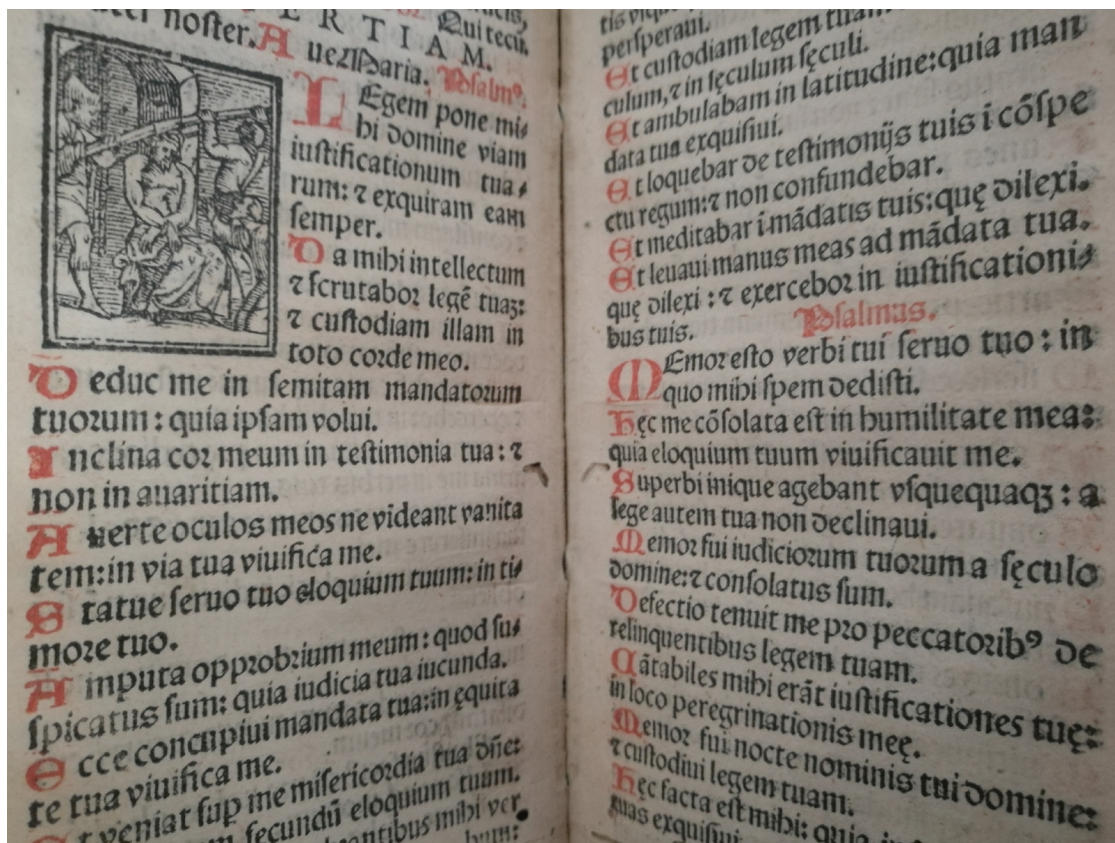 ERTIAM.
noster. Aue Maria. Qui tecū
Psalmꝰ.
LEgem pone mi⸗
hi domine viam
iustificationum tua⸗
rum: ⁊ exquiram eam
semper.
Da mihi intellectum
⁊ scrutabor legē tuaꝫ:
⁊ custodiam illam in
toto corde meo.
Deduc me in semitam mandatorum
tuorum: quia ipsam volui.
Inclina cor meum in testimonia tua: ⁊
non in auaritiam.
Auerte oculos meos ne videant vanita
tem: in via tua viuifica me.
Statue seruo tuo eloquium tuum: in ti⸗
more tuo.
Amputa opprobrium meum: quod su⸗
spicatus sum: quia iudicia tua iucunda.
Ecce concupiui mandata tua: in ęquita
te tua viuifica me.
Et veniat sup me misericordia tua dñe:
secundū eloquium tuum.
mihi ver
bum:
persperaui.
Et custodiam legem tuam
culum, ⁊ in sęculum sęculi.
Et ambulabam in latitudine: quia man
data tua exquisiui.
Et loquebar de testimonijs tuis i cōspe
ctu regum: ⁊ non confundebar.
Et meditabar i mādatis tuis: quę dilexi.
Et leuaui manus meas ad mādata tua.
quę dilexi: ⁊ exercebor in iustificationi⸗
bus tuis.
Psalmus.
MEmor esto verbi tui seruo tuo: in
quo mihi spem dedisti.
Hęc me cōsolata est in humilitate mea:
quia eloquium tuum viuificauit me.
Superbi inique agebant vsquequaqꝫ: a
lege autem tua non declinaui.
Memor fui iudiciorum tuorum a sęculo
domine: ⁊ consolatus sum.
Defectio tenuit me pro peccatoribꝰ de
relinquentibus legem tuam.
Cātabiles mihi erāt iustificationes tuę:
in loco peregrinationis meę.
Memor fui nocte nominis tui domine:
⁊ custodiui legem tuam.
Hęc facta est mihi: quia
tuas exquisiui